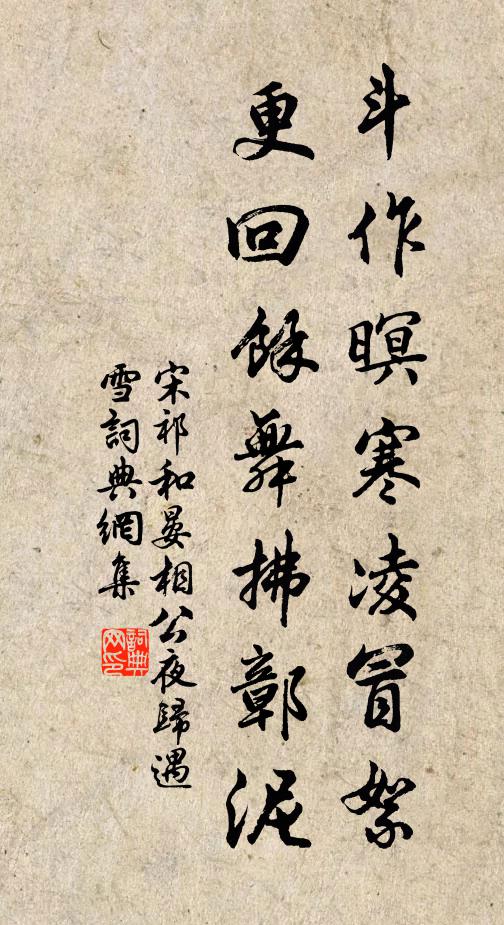 斗作暝寒凌冒絮
更回餘舞拂鄣泥
宋祁和晏相公夜歸遇
雪詞典網集
詞典网印